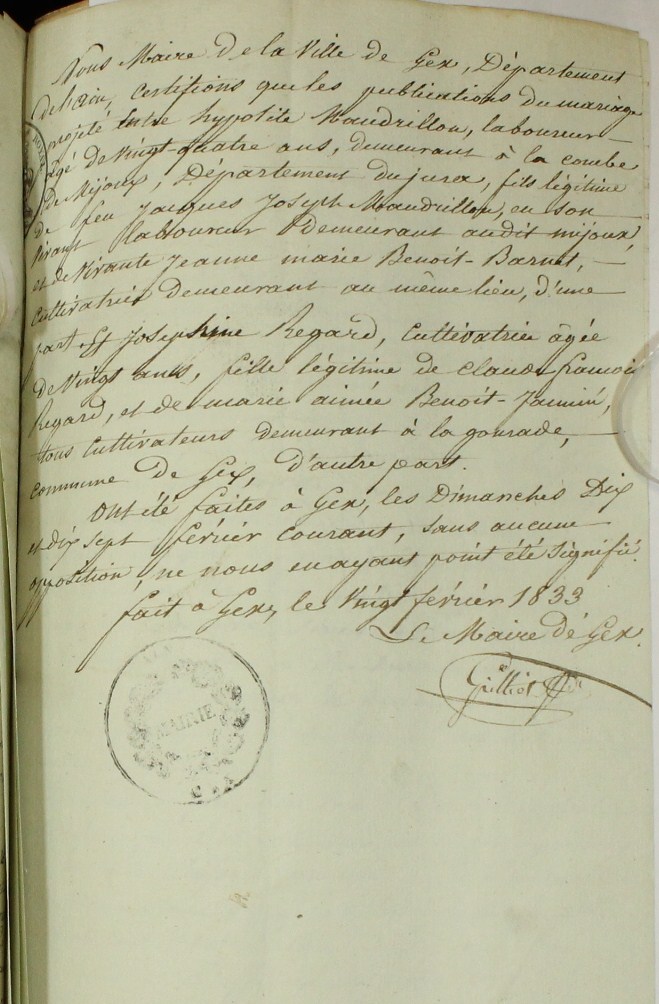 Nous Maire de la Ville de Gex, Département
de l'ain, certifions que les publications du mariage
projeté entre hypolite Maudrillon, laboureur
agé de Vingt-quatre ans, demeurant à la combe
de Mijoux, Département du jura, fils légitime
de feu Jacques Joseph Maudrillon, en son
vivant laboureur demeurant audit mijoux,
et de vivante Jeanne marie Benoit-Barnet,
cultivatrice demeurant au même lieu, d'une
part Et Josephine Regard, Cultivatrice âgée
de Vingt ans, fille légitime de claude françois
Regard, et de marie aimée Benoit-Jannin,
tous Cultivateurs demeurant à la gourade,
commune de Gex, d'autre part.
Ont été faites à Gex, les Dimanches Dix
et dix sept février courant, sans aucune
opposition, ne nous en ayant point été signifié.
fait à Gex, le Vingt février 1833
Le Maire de Gex.
MAIRIE